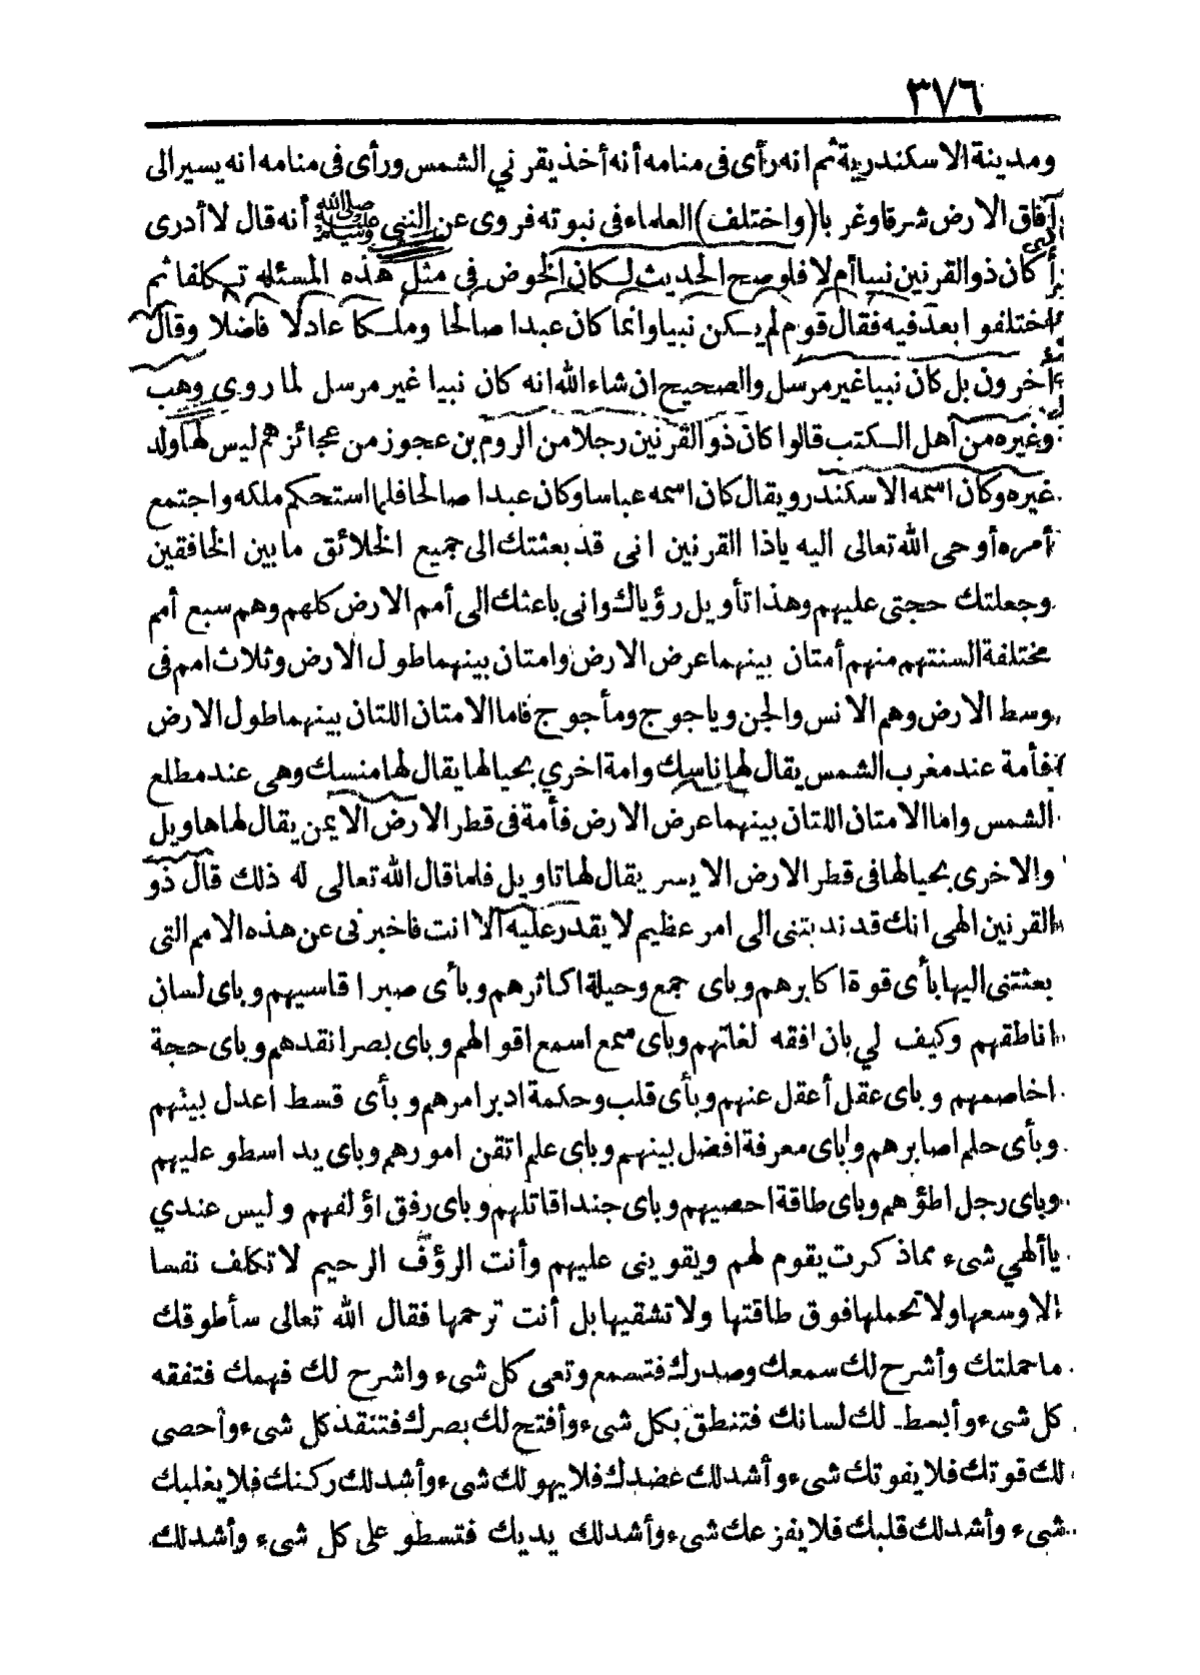 ٣٧٦
ومدينة الاسكندرية ثم انه رأى فى منامه أنه أخذ يقرني الشمس ورأى فى منامه انه يسير الى
آفاق الارض شرقا وغر با (واختلف) العلماء فى نبوته فروى عن النبي ﷺ أنه قال لا أدرى
أ كان ذو القرنين نبيا أم لا فلو صح الحديث لكان الخوض فى مثل هذه المسئله تكلفا ثم
اختلفوا بعد فيه فقال قوم لم يكن نبيا وانما كان عبدا صالحا وملكا عادلا فاضلا وقال
آخرون بل كان نبيا غير مرسل والصحيح ان شاء الله انه كان نبيا غير مرسل لما روى وهب
وغيره من أهل الكتب قالوا كان ذو القرنين رجلا من الروم بن عجوز من عجائزهم ليس لها ولد
غيره وكان اسمه الاسكندر و يقال كان اسمه عباسا وكان عبدا صالحا فلما استحكم ملكه واجتمع
أمره أوحى الله تعالى اليه ياذا القرنين انى قد بعثتك الى جميع الخلائق ما بين الخافقين
وجعلتك حجتى عليهم وهذا تأويل رؤياك وانى باعثك الى أمم الارض كلهم وهم سبع أمم
مختلفة السنتهم منهم أمتان بينهما عرض الارض وامتان بينهما طول الارض وثلاث امم فى
وسط الارض وهم الانس والجن وياجوج ومأجوج فاما الامتان اللتان بينهما طول الارض
فأمة عند مغرب الشمس يقال لها ناسك وامة اخري بحيالها يقال لها منسك وهى عند مطلع
الشمس واما الامتان اللتان بينهما عرض الارض فأمة فى قطر الارض الايمن يقال لها هاويل
والاخرى بحيالها فى قطر الارض الايسر يقال لها تاويل فلما قال الله تعالى له ذلك قال ذو
القرنين الهى انك قد ند بتنى الى امر عظيم لا يقدر عليه الا انت فاخبرنى عن هذه الامم التى
بعثتنى اليها بأى قوة اكابرهم وباى جمع وحيلة اكاثرهم وبأى صبر اقاسيهم وباى لسان
اناطقهم وكيف لي بان افقه لغاتهم وباى سمع اسمع اقوالهم وباى بصر انقدهم وباى حجة
اخاصمهم وباى عقل أعقل عنهم وبأى قلب وحكمة ادبر امرهم وبأى قسط اعدل بينهم
وبأى حلم اصابرهم وباى معرفة افضل بينهم وباى علم اتقن امورهم وباى يد اسطو عليهم
وباى رجل اطؤهم وباى طاقة احصيهم وباى جند اقاتلهم وباى رفق اؤلفهم وليس عندي
ياألهي شىء مماذ كرت يقوم لهم ويقوينى عليهم وأنت الرؤف الرحيم لا تكلف نفسا
إلا وسعها ولا تحملها فوق طاقتها ولا تشقيها بل أنت ترحمها فقال الله تعالى سأطوقك
ما حملتك وأشرح لك سمعك وصدرك فتسمع وتعى كل شىء واشرح لك فهمك فتفقه
كل شىء وأبسط لك لسانك فتنطق بكل شىء وأفتح لك بصرك فتنقذ كل شىء وأحصى
لك قوتك فلا يفوتك شىء وأشد لك عضدك فلا يهولك شىء وأشد لك ركنك فلا يغلبك
شىء وأشد لك قلبك فلا يفزعك شىء وأشد لك يديك فتسطو على كل شىء وأشد لك